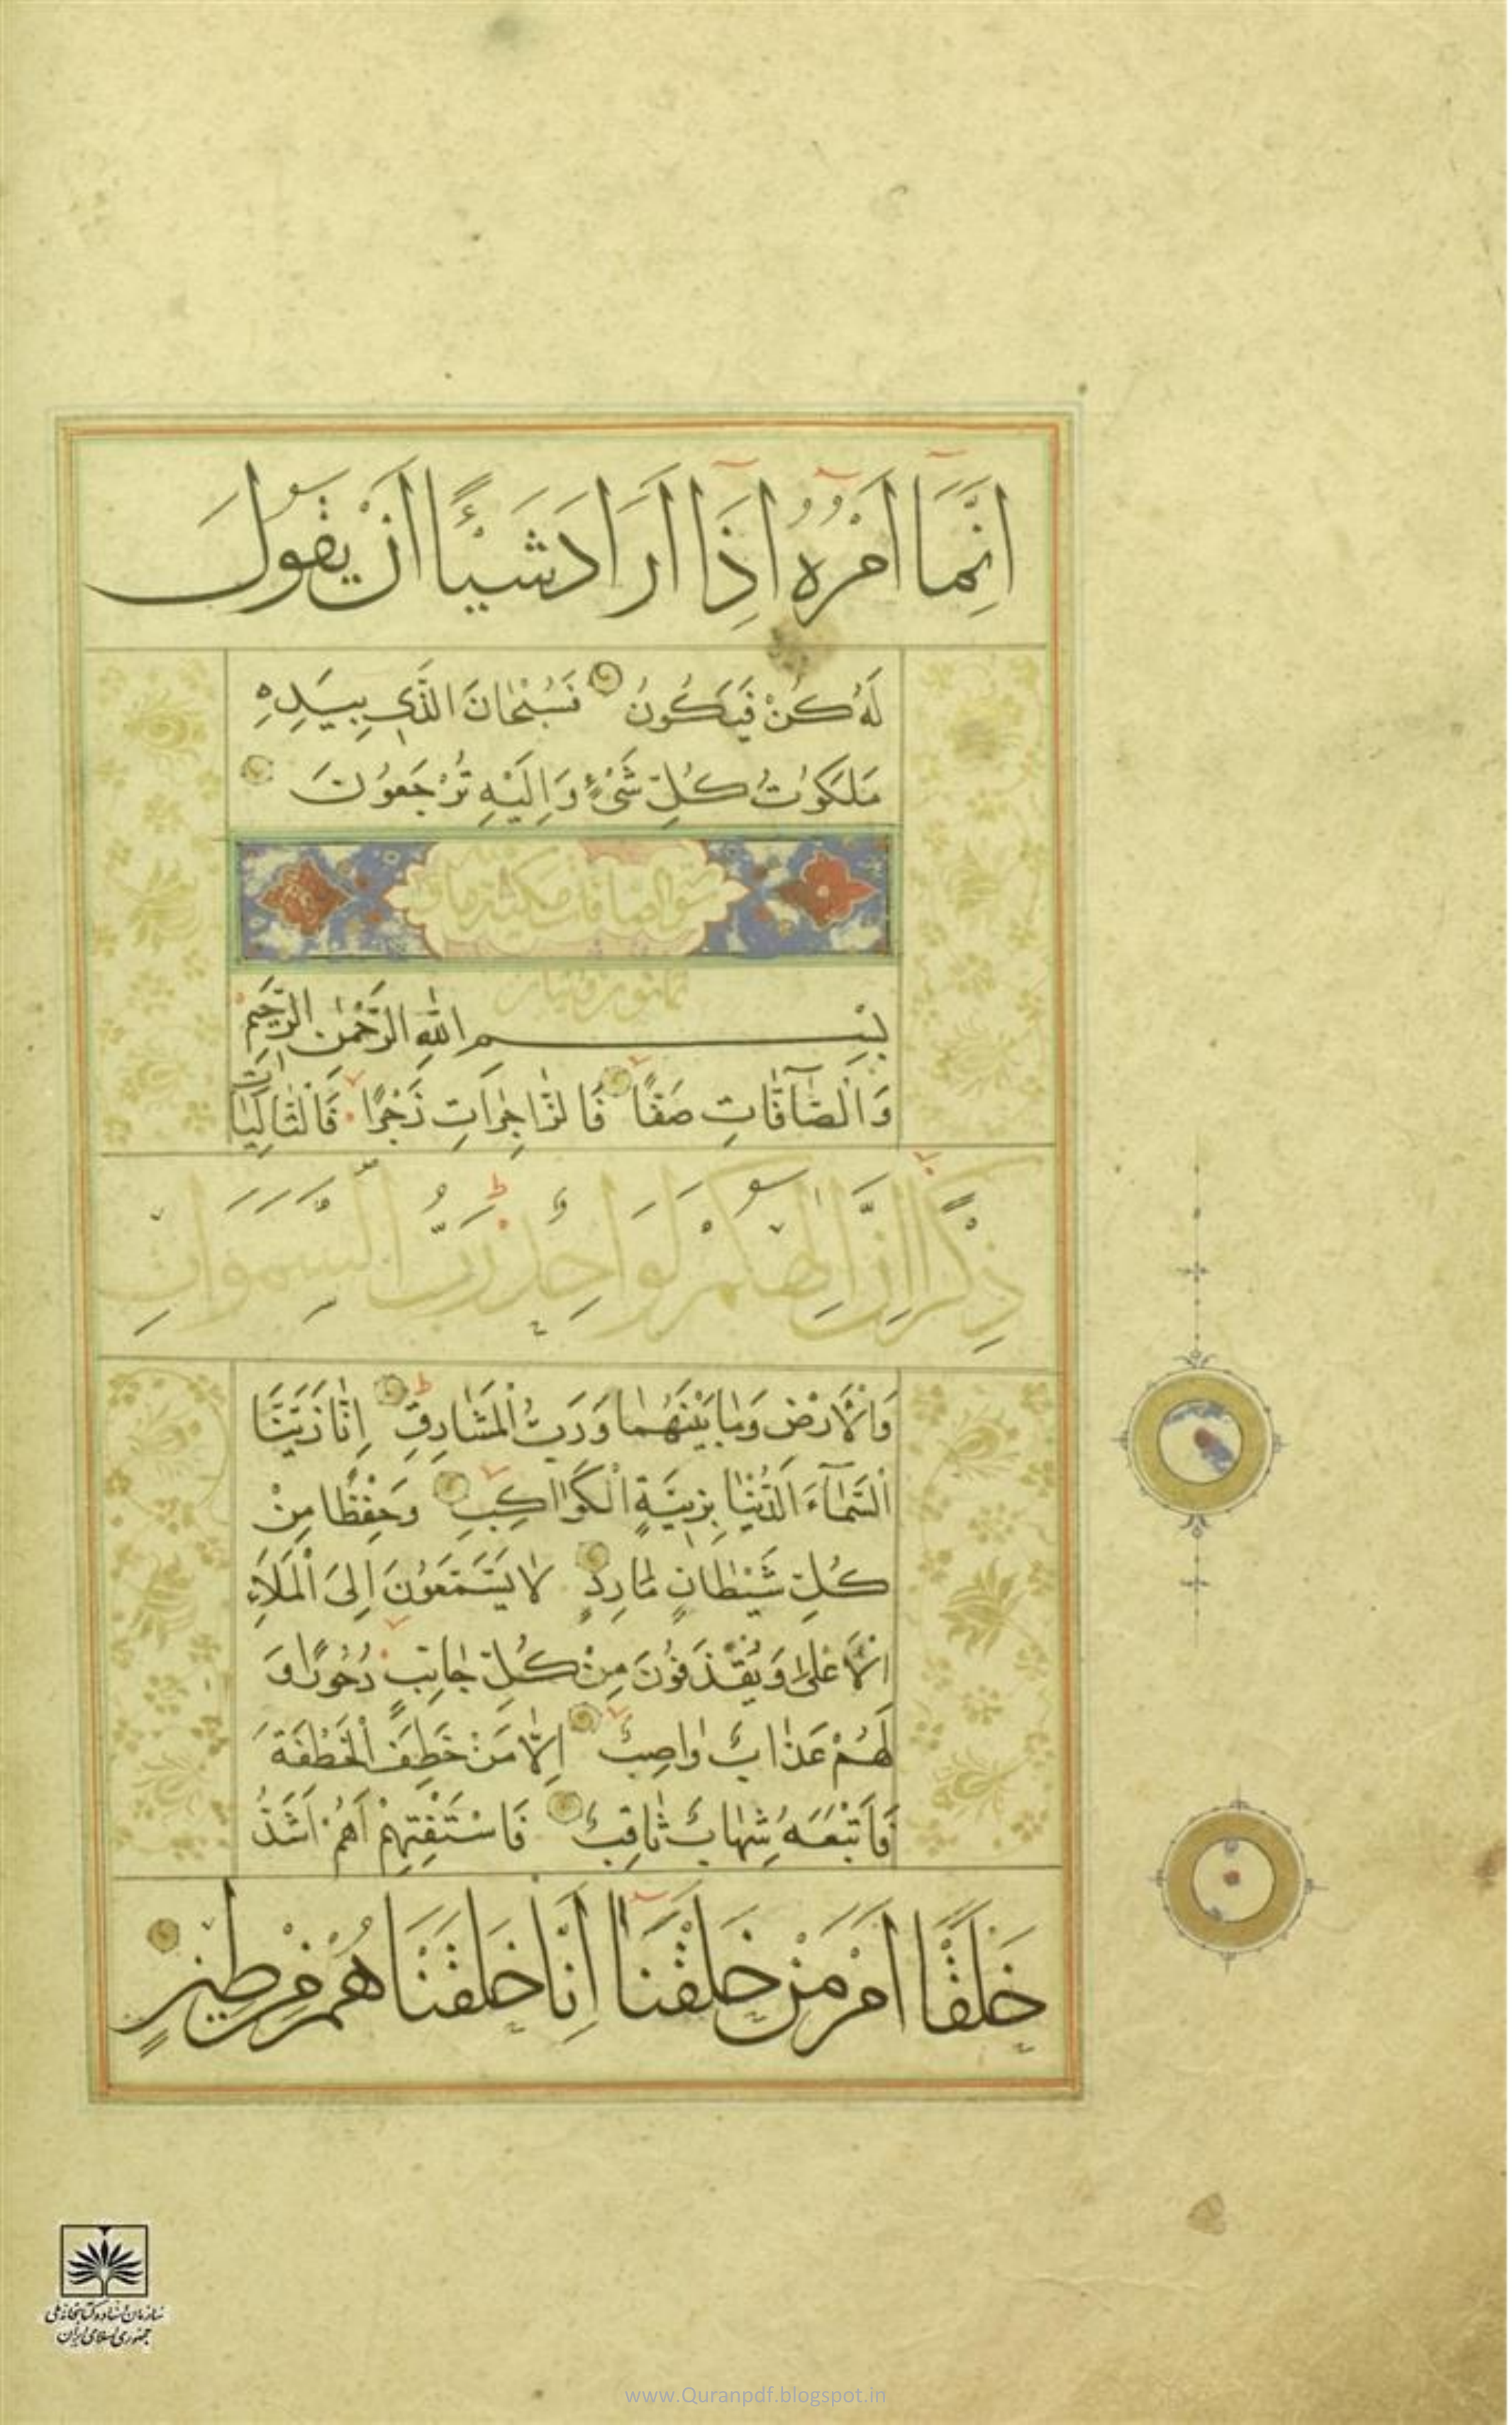 اِنَّمَا اَمْرُهُ اِذَا اَرَادَ شَيْئًا اَنْ يَقُولَ
لَهُ كُنْ فَيَكُونُ فَسُبْحٰانَ الَّذِي بِيَدِهِ
مَلَكُوْتُ كُلِّ شَيْءٍ وَاِلَيْهِ تُرْجَعُوْنَ
سورة الصافات مكية مائة
بِسْمِ اللّٰهِ الرَّحْمٰنِ الرَّحِيمِ
وَالْصَّآفّٰاتِ صَفًّا فَالزّٰاجِرٰاتِ زَجْرًا فَالْتّٰالِيٰاتِ
ذِكْرًا اِنَّ اِلٰهَكُمْ لَوَاحِدٌ رَبُّ السَّمَوَاتِ
وَالْاَرْضِ وَمٰا بَيْنَهُمٰا وَرَبُّ الْمَشٰارِقِ اِنّٰا زَيَّنَّا
الْسَّمٰآءَ الدُّنْيٰا بِزِينَةٍ الْكَوٰاكِبِ وَحِفْظًا مِنْ
كُلِّ شَيْطٰانٍ مٰارِدٍ لٰا يَسَّمَّعُوْنَ اِلَى الْمَلَاِ
الْاَعْلٰى وَيُقْذَفُوْنَ مِنْ كُلِّ جٰانِبٍ دُحُورًا وَ
لَهُمْ عَذٰابٌ وٰاصِبٌ اِلّٰا مَنْ خَطِفَ الْخَطْفَةَ
فَاَتْبَعَهُ شِهٰابٌ ثٰاقِبٌ فَاسْتَفْتِهِمْ اَهُمْ اَشَدُّ
خَلْقًا اَمْ مَنْ خَلَقْنَا اِنَّا خَلَقْنَاهُمْ مِنْ طِينٍ
سازمان اسناد و کتابخانه ملی
جمهوری اسلامی ایران
www.Quranpdf.blogspot.in